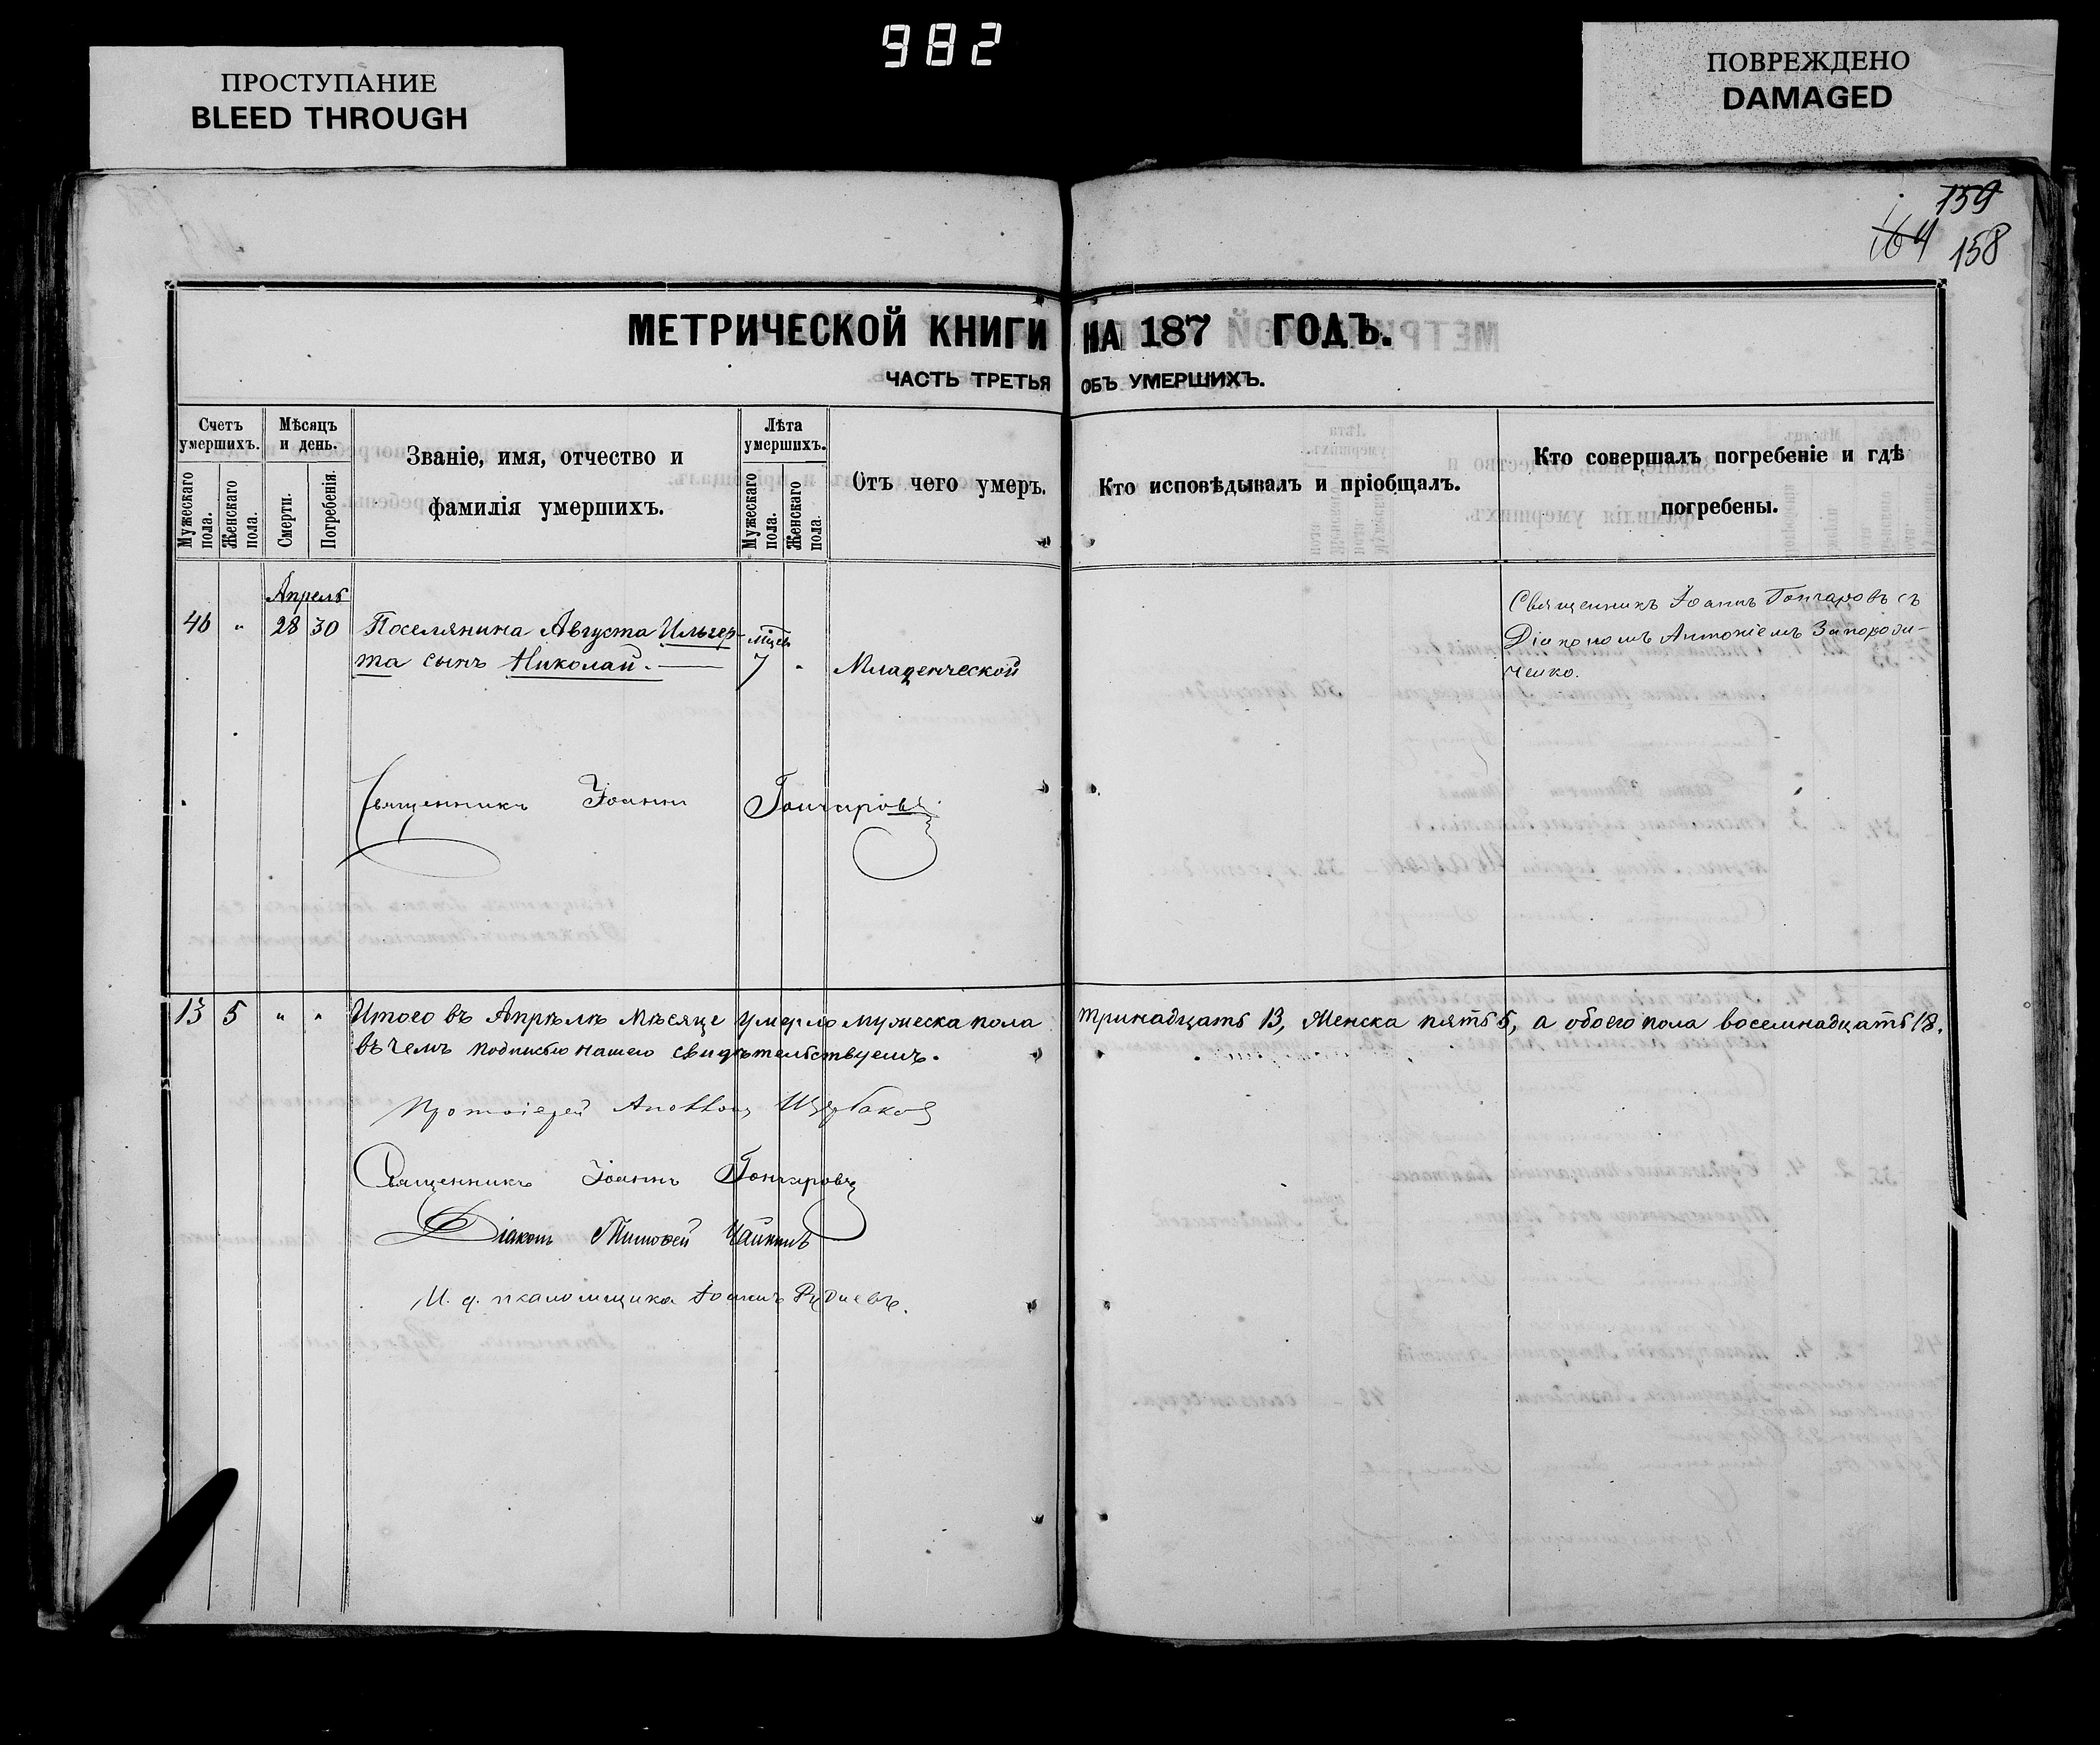 982
ПРОСТУПАНИЕ
BLEED THROUGH
ПОВРЕЖДЕНО
DAMAGED
159
164 158
МЕТРИЧЕСКОЙ КНИГИ НА 187 ГОДЪ.
ЧАСТЬ ТРЕТЬЯ ОБЪ УМЕРШИХЪ.
Счетъ умершихъ.
Мужескаго пола.
Женскаго пола.
Мѣсяцъ и день.
Смерти.
Погребенія.
Званіе, имя, отчество и
фамилія умершихъ.
Лѣта умершихъ.
Мужескаго пола.
Женскаго пола.
Отъ чего умеръ.
Кто исповѣдывалъ и пріобщалъ.
Кто совершалъ погребеніе и гдѣ
погребены.
Апрель
46 " 28 30 Поселянина Августа Ильгер-
та сынъ Николай. 7 " Младенческой
Священникъ Іоаннъ Гончаровъ съ
Діакономъ Антоніемъ Запорожченко.
Священникъ Іоаннъ Гончаровъ
13 5 " " Итого въ Апрѣлѣ мѣсяце умерло мужеска пола тринадцать 13, Женска пять 5, а обоего пола восемнадцать 18.
въ чемъ подписью нашею свидѣтельствуемъ.
Протоіерей Щербаковъ
Священникъ Іоаннъ Гончаровъ
Діаконъ Тимоѳей
И. д. псаломщика Іоаннъ Рудневъ.